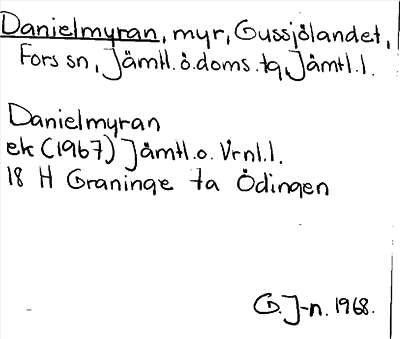 Danielmyran, myr, Gussjölandet,
Fors sn, Jämtl. ö. doms. tg, Jämtl. l.
Danielmyran
ek (1967) Jämtl. o. Vrnl. l.
18 H Graninge 7a Ödingen
G. J-n. 1968.